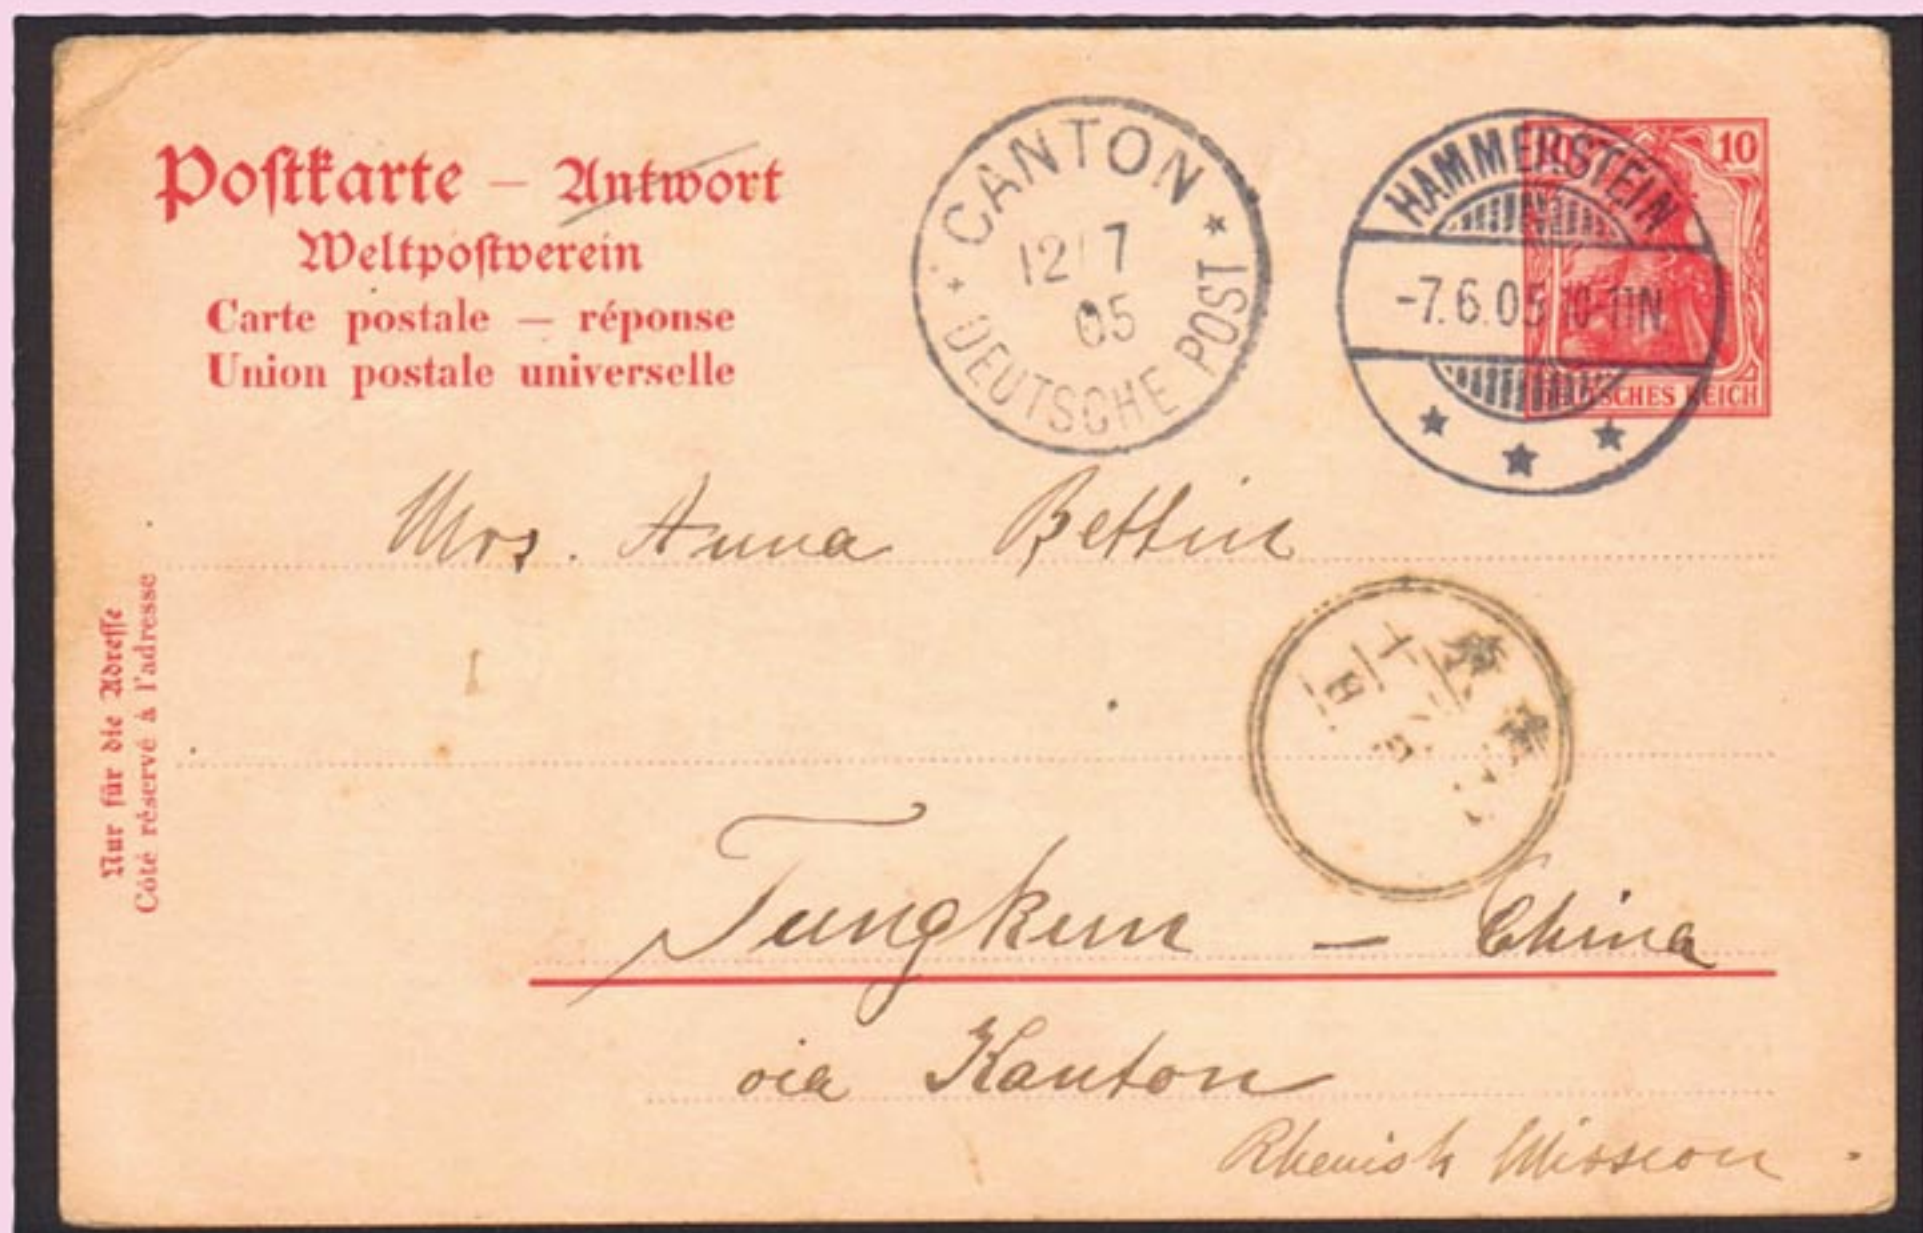 Postkarte – Antwort
Weltpostverein
Carte postale — réponse
Union postale universelle
CANTON
12 7
05
DEUTSCHE POST
HAMMERSTEIN
-7.6.05 10-11N
10
DEUTSCHES REICH
Mrs. Anna Bettin
Nur für die Adresse
Côté réservé à l'adresse
Tungkun – China
via Kanton
Rhenish Mission